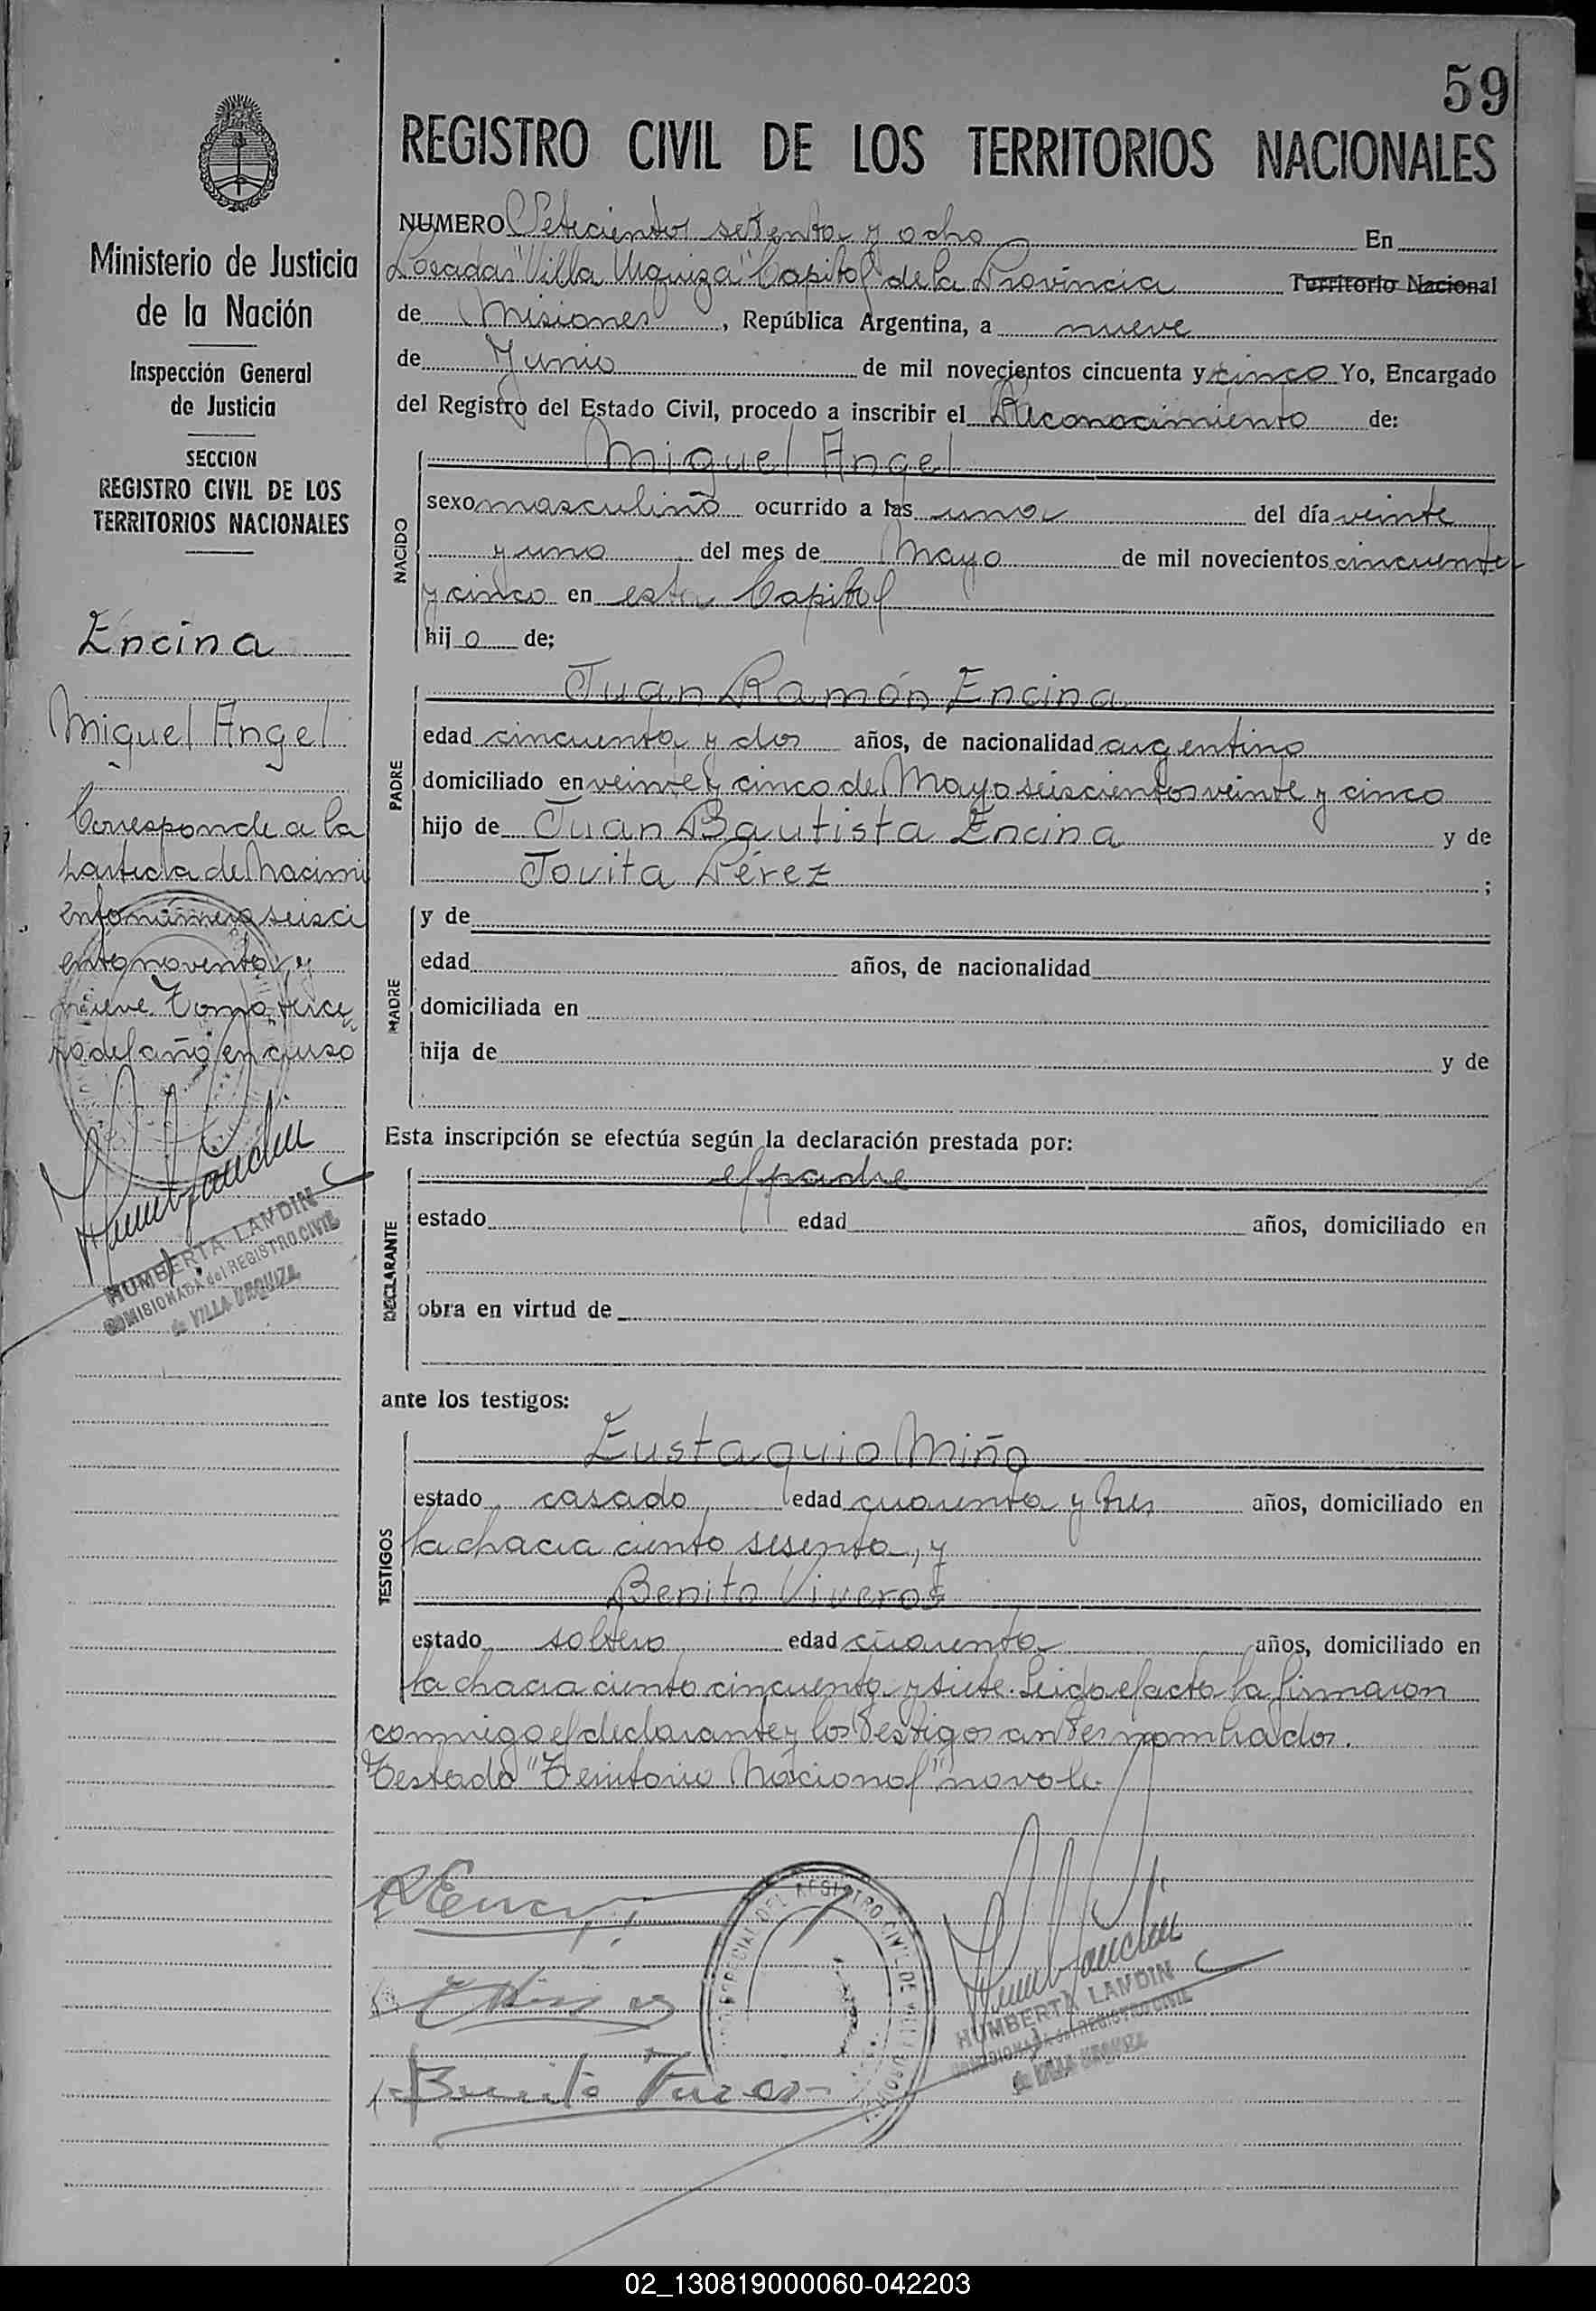 59
REGISTRO CIVIL DE LOS TERRITORIOS NACIONALES
Ministerio de Justicia
de la Nación
Inspección General
de Justicia
SECCION
REGISTRO CIVIL DE LOS
TERRITORIOS NACIONALES
Encina
Miguel Angel
Corresponde a la
partida de Nacimi
ento número seisci
ento noventa y
nueve Tomo terce
ro del año en curso
HUMBERTA LANDIN
COMISIONADA del REGISTRO CIVIL
de VILLA URQUIZA
NUMERO Setecientos setenta y ocho En
Posadas "Villa Urquiza" Capital de la Provincia Territorio Nacional
de Misiones, República Argentina, a nueve
de Junio de mil novecientos cincuenta y cinco Yo, Encargado
del Registro del Estado Civil, procedo a inscribir el Reconocimiento de:
NACIDO
Miguel Angel
sexo masculino ocurrido a las una del día veinte
y uno del mes de Mayo de mil novecientos cincuenta
y cinco en esta Capital
hijo de;
PADRE
Juan Ramón Encina
edad cincuenta y dos años, de nacionalidad argentino
domiciliado en veinte y cinco de Mayo seiscientos veinte y cinco
hijo de Juan Bautista Encina y de
Jovita Pérez ;
MADRE
y de
edad años, de nacionalidad
domiciliada en
hija de y de
Esta inscripción se efectúa según la declaración prestada por:
DECLARANTE
el padre
estado edad años, domiciliado en
obra en virtud de
ante los testigos:
TESTIGOS
Eustaquio Miño
estado casado edad cuarenta y tres años, domiciliado en
la chacra ciento sesenta, y
Benito Viveros
estado soltero edad cuarenta años, domiciliado en
la chacra ciento cincuenta y siete. Leida el acta la firmaron
conmigo el declarante y los testigos antes nombrados.
Testado "Territorio Nacional" no vale.
HUMBERTA LANDIN
COMISIONADA del REGISTRO CIVIL
de VILLA URQUIZA
Benito
02_130819000060-042203